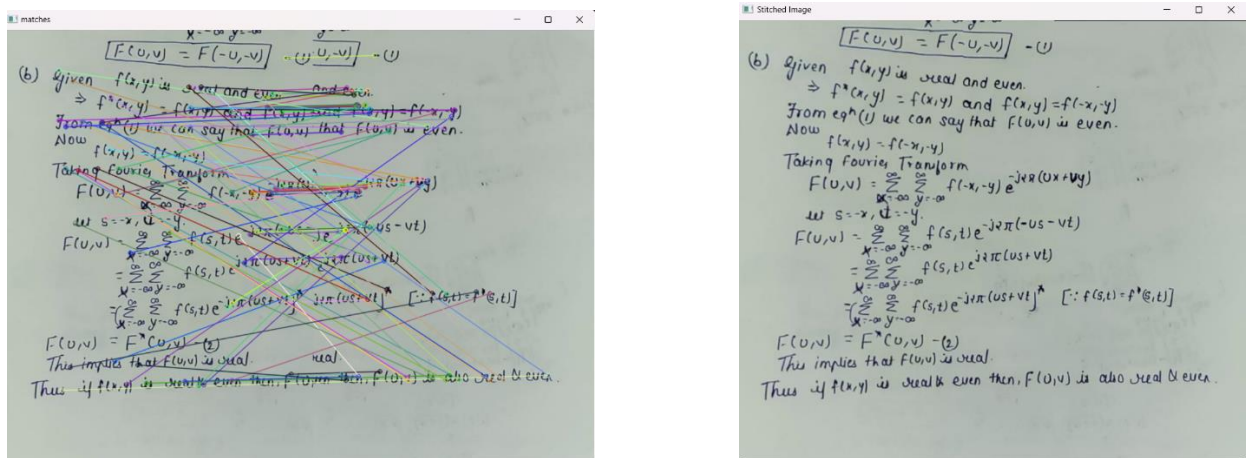 matches
F(U,V) = F(-U,-V)
(b) Given f(x,y) is real and even
⇒ f*(x,y) = f(x,y) and f(x,y) = f(-x,-y)
From eqn (1) we can say that f(u,v) that f(u,v) is even.
Now
f(x,y) = f(-x,-y)
Taking Fourier Transform
F(U,V) = ∞Σx=-∞ ∞Σy=-∞ f(-x,-y) e
let s=-x, t=-y.
F(U,V) = ∞Σx=-∞ ∞Σy=-∞ f(s,t) e
= ∞Σx=-∞ ∞Σy=-∞ f(s,t) e j2π(us+vt) e j2π(us+vt)
= (∞Σx=-∞ ∞Σy=-∞ f(s,t) e -j2π(us+vt))* j2π(us+vt))* [∵ f(s,t) = f*(s,t)]
F(U,V) = F*(U,V) - (2)
This implies that F(U,V) is real. real
Thus if f(x,y) is real & even then, F(U,V) is also real & even.
Stitched Image
F(U,V) = F(-U,-V) - (1)
(b) Given f(x,y) is real and even.
⇒ f*(x,y) = f(x,y) and f(x,y) = f(-x,-y)
From eqn (1) we can say that F(U,V) is even.
Now
f(x,y) = f(-x,-y)
Taking Fourier Transform
F(U,V) = ∞Σx=-∞ ∞Σy=-∞ f(-x,-y) e -j2π(Ux+Vy)
let s=-x, t=-y.
F(U,V) = ∞Σx=-∞ ∞Σy=-∞ f(s,t) e -j2π(-us-vt)
= ∞Σx=-∞ ∞Σy=-∞ f(s,t) e j2π(us+vt)
= (∞Σx=-∞ ∞Σy=-∞ f(s,t) e -j2π(us+vt))* [∵ f(s,t) = f*(s,t)]
F(U,V) = F*(U,V) - (2)
This implies that F(U,V) is real.
Thus if f(x,y) is real & even then, F(U,V) is also real & even.